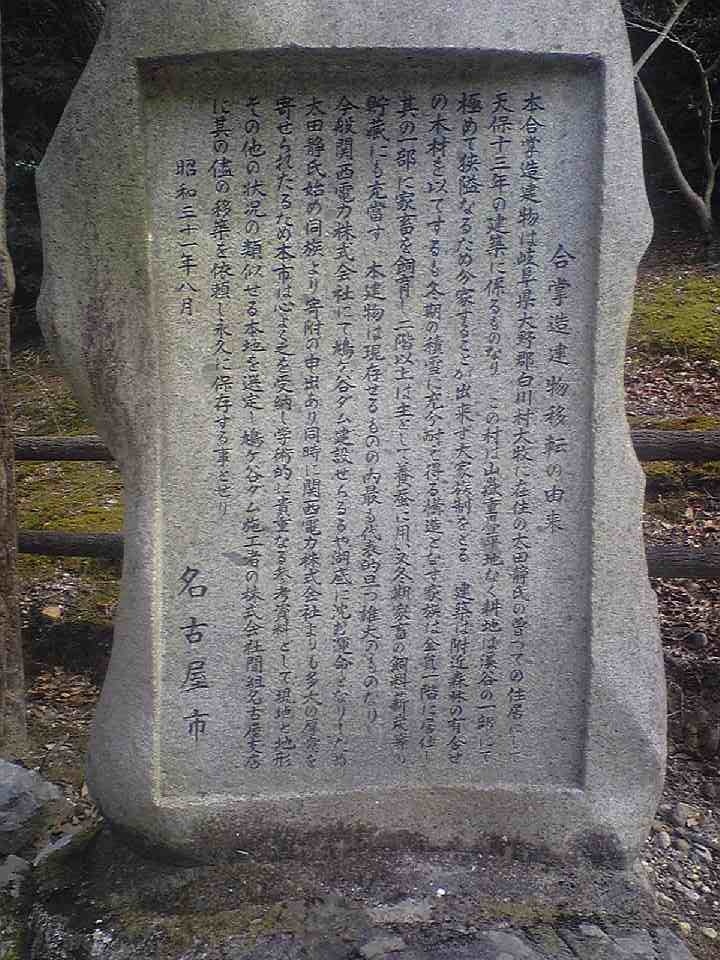 合掌造建物移転の由来
本合掌造建物は岐阜県大野郡白川村大牧に在住の太田静氏の曽っての住居にして
天保十三年の建築に係るものなり この村は山嶽重畳平地なく耕地は渓谷の一部にて
極めて狭隘なるため分家すること出来ず大家族制をとる 建築は附近森林の有合せ
の木材を以てするも冬期の積雪に充分耐え得る構造となす家族は全員一階に居住し
其の一部に家畜を飼育し二階以上は主として養蚕に用い又冬期家畜の飼料薪炭等の
貯蔵にも充当す 本建物は現存せるものの内最も代表的且つ雄大のものたり
今般関西電力株式会社にて鳩ヶ谷ダム建設せらるるや湖底に沈む運命となりしため
太田静氏始め同族より寄附の申出あり同時に関西電力株式会社よりも多大の厚意を
寄せられたるため本市は心よく之を受納し学術的に貴重なる参考資料として現地と地形
その他の状況の類似せる本地を選定し鳩ヶ谷ダム施工者の株式会社間組名古屋支店
に其の儘の移築を依頼し永久に保存する事とせり
昭和三十一年八月
名古屋市